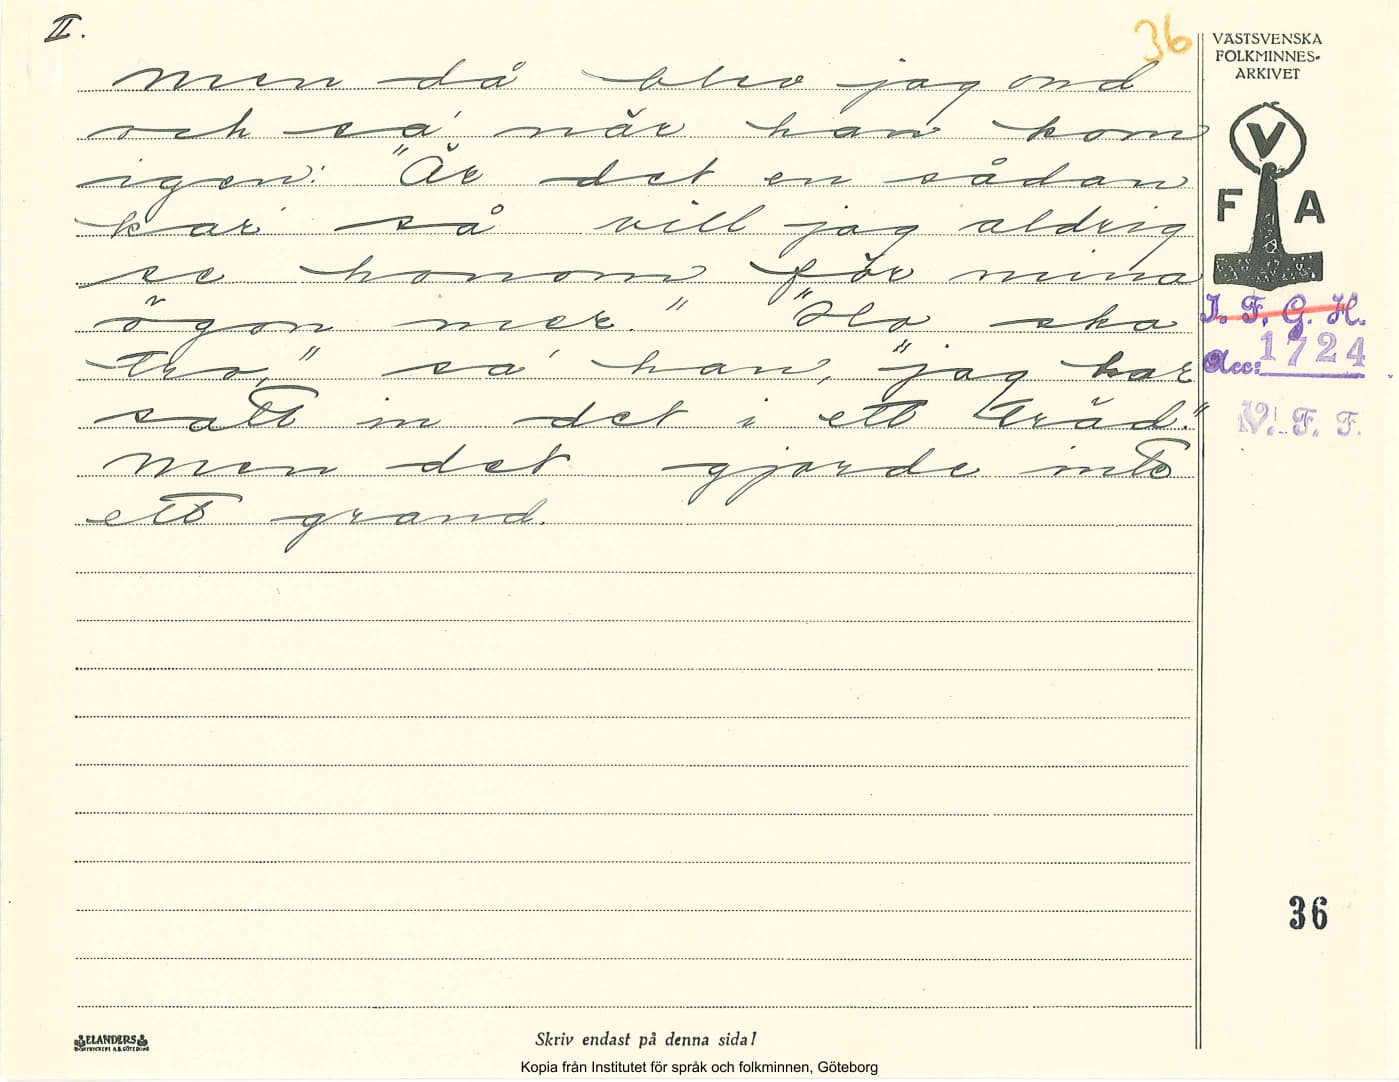 II.
36
men då blev jag ond
och sa' när han kom
igen: "Är det en sådan
kar' så vill jag aldrig
se honom för mina
ögon mer." "Ho ska
tro," sa' han, "jag har
satt in det i ett träd."
Men det gjorde inte
ett grand.
VÄSTSVENSKA
FOLKMINNES-
ARKIVET
V
F A
I. F. G. H.
Acc: 1724
V. F. F.
36
ELANDERS
Skriv endast på denna sida!
Kopia från Institutet för språk och folkminnen, Göteborg